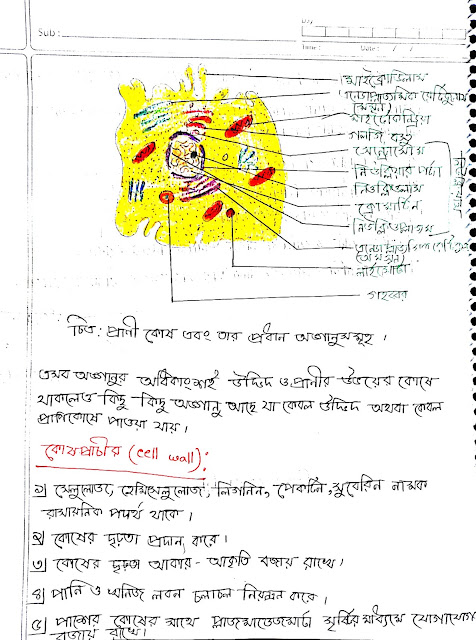 Day
Sub :
Time :
Date : / /
মাইক্রোভিলাস
এন্ডোপ্লাজমিক রেটিকুলাম
(মসৃন)
মাইটোকন্ড্রিয়া
গলগি বস্তু
সেন্ট্রোসোম
নিউক্লিয়ার পর্দা
নিউক্লিওলাস
ক্রোমাটিন
এন্ডোপ্লাজমিক
(অমসৃন)
লাইসোসোম
গহ্বর
চিত্র: প্রাণী কোষ এবং তার প্রধান অঙ্গানুসমূহ ।
এসব অঙ্গানুর অধিকাংশই উদ্ভিদ ও প্রানীর উভয়ের কোষে
থাকলেও কিছু কিছু অঙ্গানু আছে যা কেবল উদ্ভিদ অথবা কেবল
প্রাণিকোষে পাওয়া যায় ।
কোষপ্রাচীর (cell wall):
১) সেলুলোজ, হেমিসেলুলোজ, লিগনিন, পেকটিন, সুবেরিন নামক
রাসায়নিক পদার্থ থাকে ।
২) কোষের দৃঢ়তা প্রদান করে ।
৩) কোষের দৃঢ়তা আকার - আকৃতি বজায় রাখে ।
৪) পানি ও খনিজ লবন চলাচল নিয়ন্ত্রন করে ।
৫) পাশের কোষের সাথে প্লাজমোডেজমাটা সৃষ্টির মাধ্যমে যোগাযোগ
বজায় রাখে ।